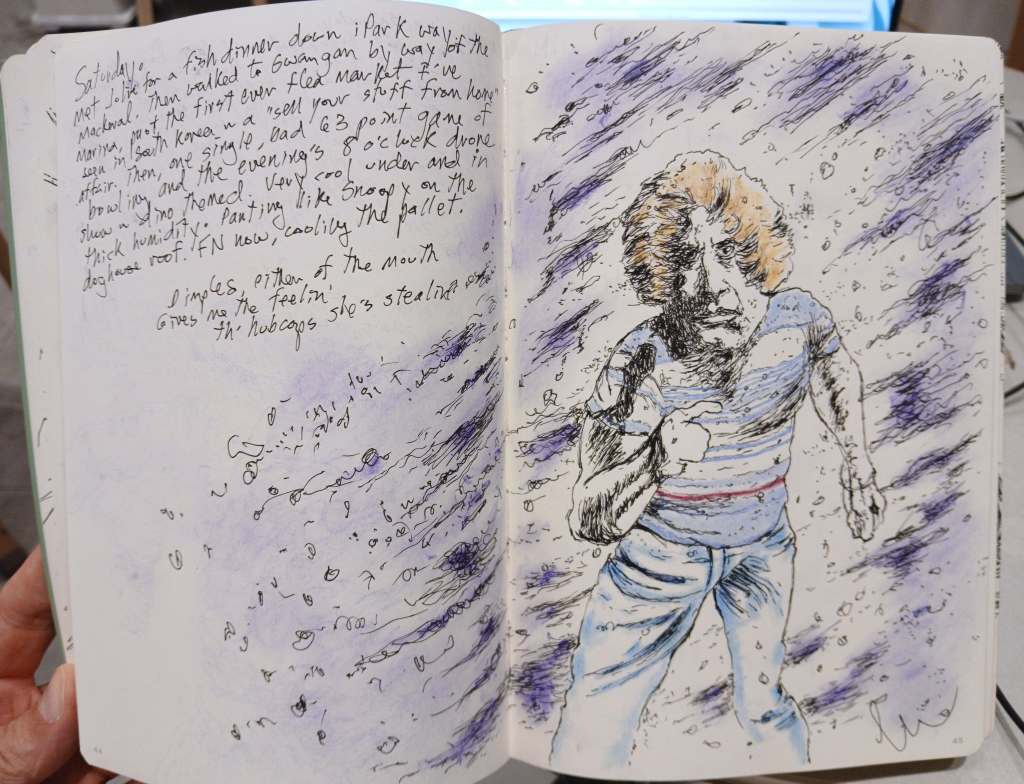 Saturday.
Met Jolie for a fish dinner down iPark way of the
mackeral. Then walked to Gwangan by way of the
marina, past the first ever flea market I've
seen in South Korea in a "sell your stuff from home"
affair. Then, one single, bad 63 point game of
bowling and the evening's 8 o'clock drone
show a dino themed. Very cool under and in
thick humidity. Panting like Snoopy on the
doghouse roof. FN now, cooling the pallet.
Dimples either of the mouth
Gives me the feelin'
th' hubcaps she's stealin'
44
45